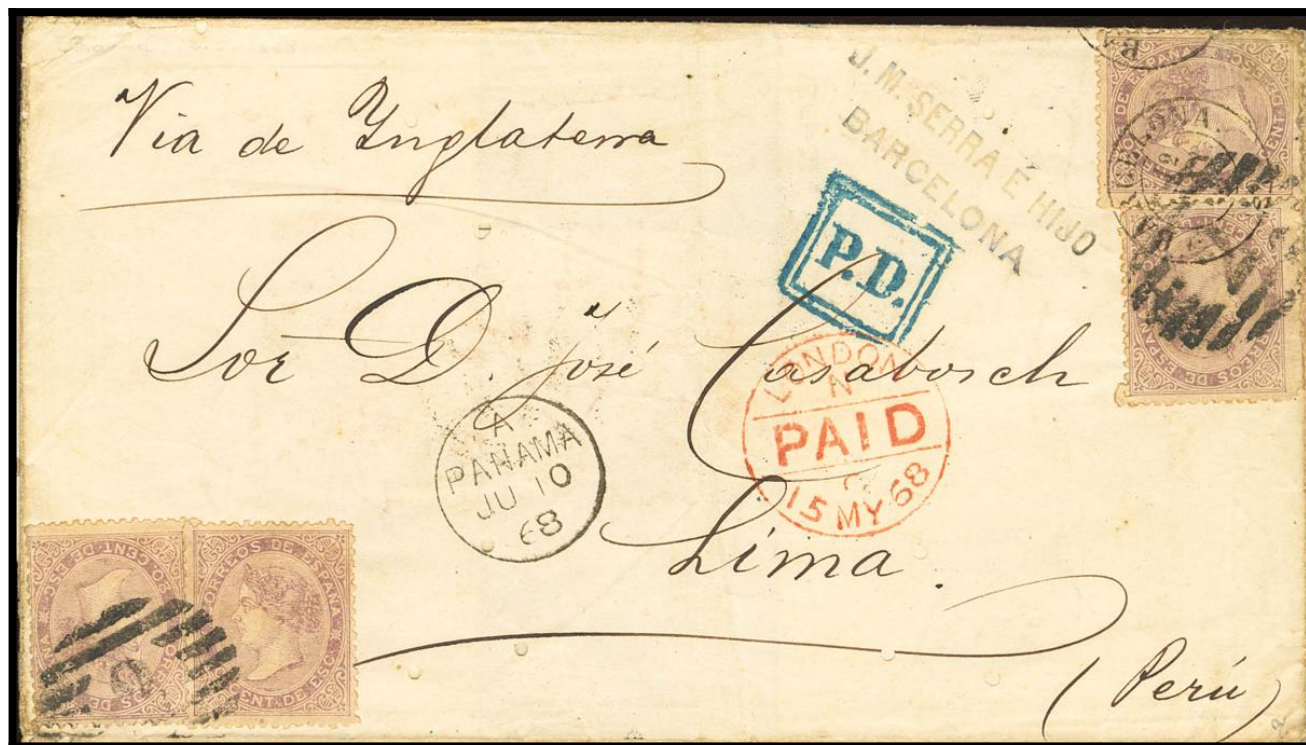 Via de Inglaterra
J. M. SERRA É HIJO
BARCELONA
P.D.
Sor D. José Casabosch
LONDON
N
PAID
15 MY 68
A
PANAMA
JU 10
68
Lima.
(Perú)
CORREOS DE ESPAÑA
CENT. DE ESO
BARCELONA
2